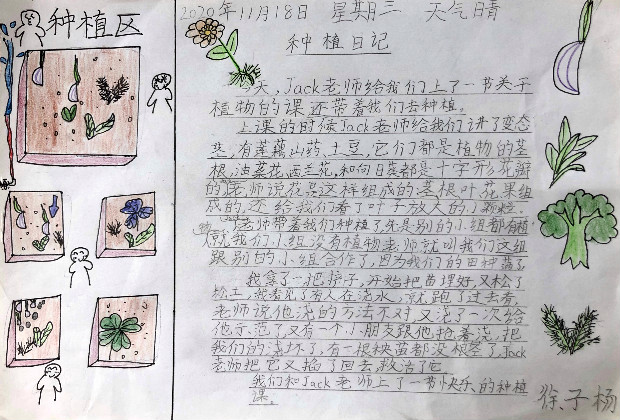 种植区
2020年11月18日 星期三 天气晴
种植日记
今天,Jack老师给我们上了一节关于
植物的课还带着我们去种植。
上课的时候Jack老师给我们讲了变态
茎,有莲藕山药、土豆,它们都是植物的茎
根,油菜花,西兰花,和向日葵都是十字形花瓣
的老师说花是这样组成的:茎根叶花果组
成的,还给我们看了叶子放大的小颗粒.
老师带着我们种植了先是别的小组都有植
我们小组没有植物老师就叫我们这组
跟别的小组合作了,因为我们的田种
我拿了一把铲子,开始把苗埋好,又松了
松土,我看见了有人在浇水,就跑了过去看
老师说他浇的方法不对,又浇了一次给
他示范了,又有一个小朋友跟他抢着浇,把
我们的浇坏了,有一根秧苗都没根茎了,Jack
老师把它又掐了回去,救活了它
我们和Jack老师上了一节快乐的种植
课。
徐子杨